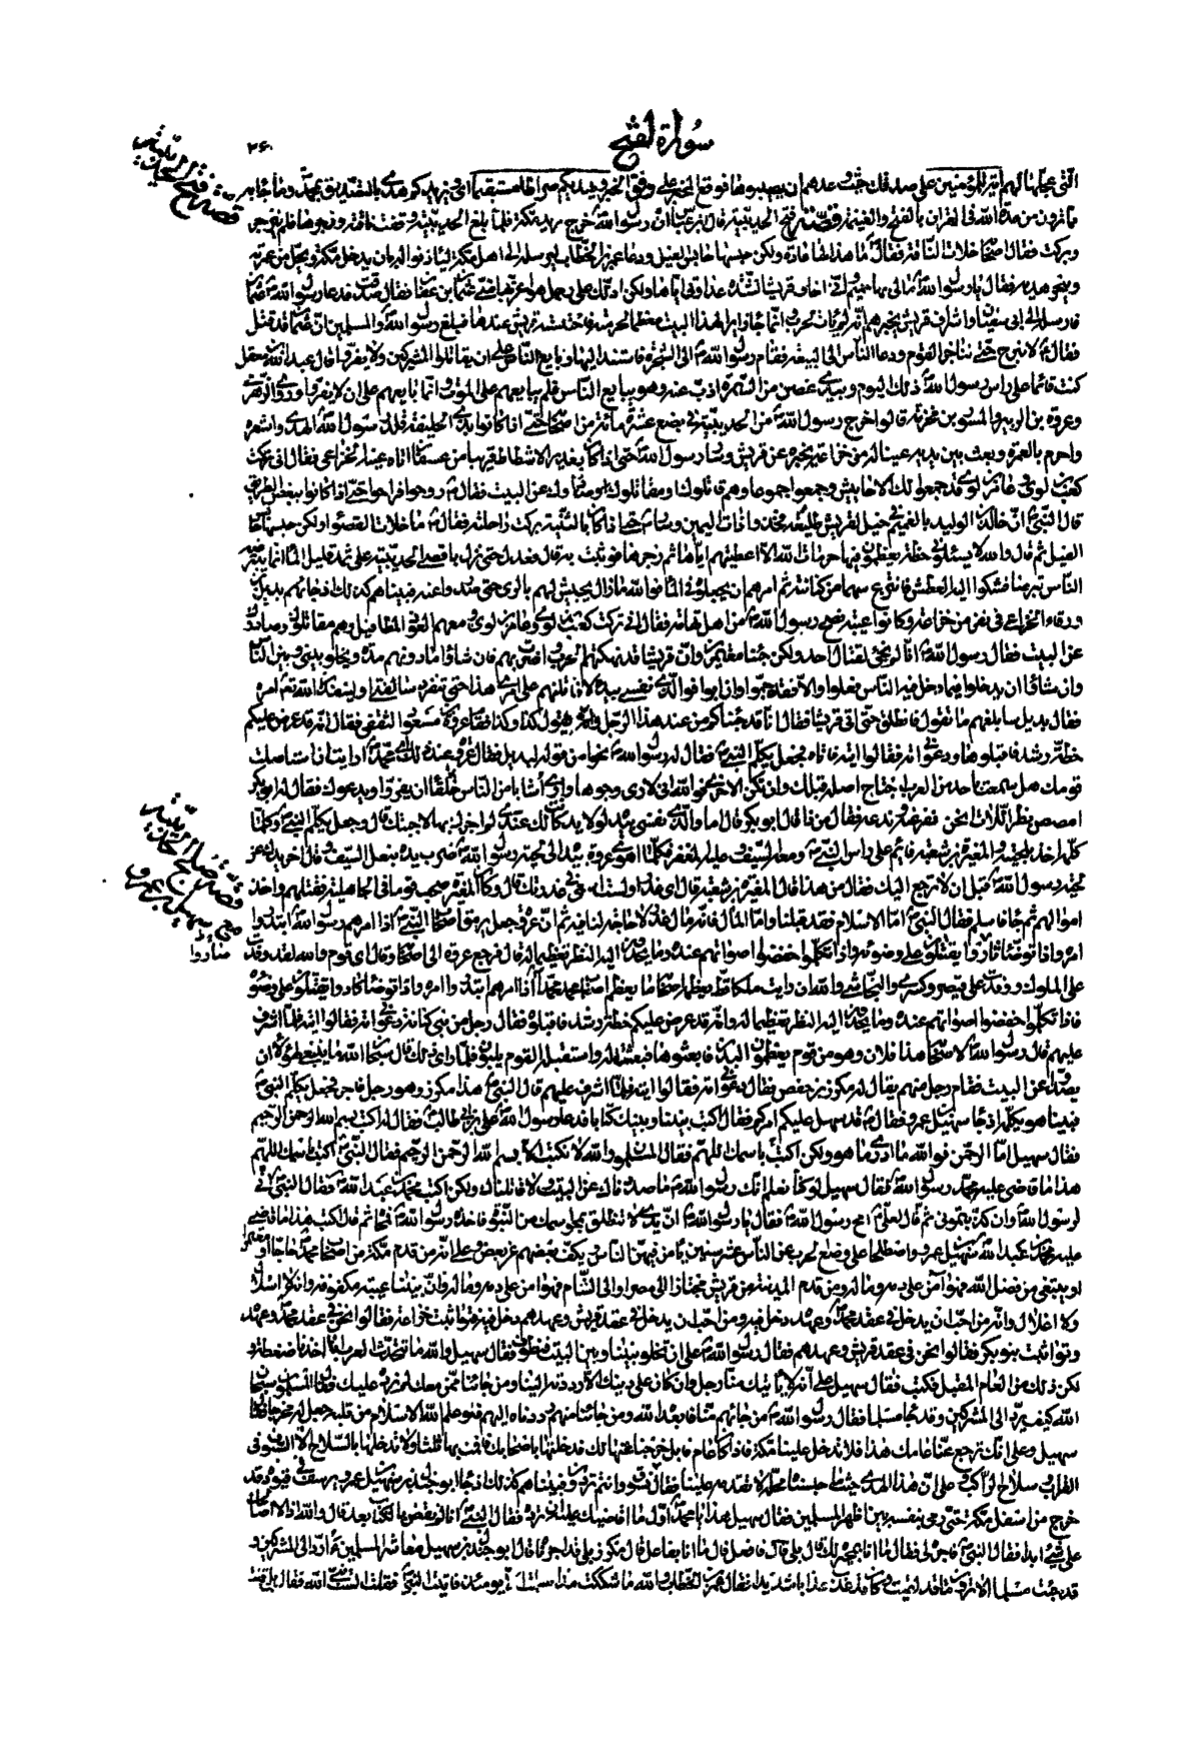 سورة الفتح
٢٦٠
التي عجلها لهم آية للمؤمنين على صدقك حيث وعدهم ان يصيبوها فوقع المخبر على وفق الخبر ويهديكم صراطا مستقيما اي ويزيدكم هدى بالتصديق بمحمد وما جاء به
مما ترون من عدة الله في القران بالفتح والغنيمة قصة فتح الحديبية قال ابن عباس ان رسول الله خرج يريد مكة فلما بلغ الحديبية وقفت ناقته وزجرها فلم تنزجر
وبركت فقال اصحابه خلأت الناقة فقال ما هذا لها عادة ولكن حبسها حابس الفيل ودعا عمر بن الخطاب ليرسله الى اهل مكة ليأذنوا له بان يدخل مكة ويحل من عمرته
وينحر هديه فقال يا رسول الله مالي بها حميم واني اخاف قريشا لشدة عداوتي اياها ولكن ادلك على رجل هو اعز بها مني عثمان بن عفان فقال صدقت فدعا رسول الله عثمان
فارسله الى ابي سفيان واشراف قريش يخبرهم انه لم يأت لحرب وانما جاء زائرا لهذا البيت معظما لحرمته فاحتبسته قريش عندها فبلغ رسول الله والمسلمين ان عثمان قد قتل
فقال لا نبرح حتى نناجز القوم ودعا الناس الى البيعة فقام رسول الله الى الشجرة فاستند اليها وبايع الناس على ان يقاتلوا المشركين ولا يفروا قال عبد الله بن معقل
كنت قائما على راس رسول الله ذلك اليوم وبيدي غصن من السمرة اذب عنه وهو يبايع الناس فلم يبايعهم على الموت وانما بايعهم على ان لا يفروا وروى الزهري
وعروة بن الزبير والمسور بن مخرمة قالوا خرج رسول الله من الحديبية في بضع عشرة مائة من اصحابه حتى اذا كانوا بذي الحليفة قلد رسول الله الهدي واشعره
واحرم بالعمرة وبعث بين يديه عينا له من خزاعة يخبره عن قريش وسار رسول الله حتى اذا كان بغدير الاشطاط قريبا من عسفان اتاه عينه الخزاعي فقال اني تركت
كعب بن لوي وعامر بن لوي قد جمعوا لك الاحابيش وجمعوا جموعا وهم قاتلوك او مقاتلوك وصادوك عن البيت فقال روحوا فراحوا حتى اذا كانوا ببعض الطريق
قال النبي ان خالد بن الوليد بالغميم في خيل لقريش طليعة فخذوا ذات اليمين وسار حتى اذا كان بالثنية بركت راحلته فقال ما خلأت القصواء ولكن حبسها حابس
الفيل ثم قال والله لا يسئلوني خطة يعظمون فيها حرمات الله الا اعطيتهم اياها ثم زجرها فوثبت به قال فعدل حتى نزل باقصى الحديبية على ثمد قليل الماء انما يتبرضه
الناس تبرضا فشكوا اليه العطش فانتزع سهما من كنانته ثم امرهم ان يجعلوه في الماء فوالله ما زال يجيش لهم بالري حتى صدروا عنه فبينا هم كذلك اذ جائهم بديل بن
ورقاء الخزاعي في نفر من خزاعة وكانوا عيبة نصح رسول الله من اهل تهامة فقال اني تركت كعب بن لوي وعامر بن لوي ومعهم العوذ المطافيل وهم مقاتلوك وصادوك
عن البيت فقال رسول الله انا لم نجئ لقتال احد ولكن جئنا معتمرين وان قريشا قد نهكتهم الحرب واضرت بهم فان شاؤا ماددتهم مدة ويخلوا بيني وبين الناس
وان شاؤا ان يدخلوا فيما دخل فيه الناس فعلوا والا فقد جموا وان ابوا فوالذي نفسي بيده لاقاتلنهم على امري هذا حتى تنفرد سالفتي او لينفذن الله تعالى امره
فقال بديل سابلغهم ما تقول فانطلق حتى اتى قريشا فقال انا قد جئناكم من عند هذا الرجل وانه يقول كذا وكذا فقام عروة بن مسعود الثقفي فقال انه قد عرض عليكم
خطة رشد فاقبلوها ودعوني اته فقالوا ائته فاتاه فجعل يكلم النبي فقال له رسول الله نحوا من قوله لبديل فقال عروة عند ذلك اي محمد ارايت ان استاصلت
قومك هل سمعت باحد من العرب اجتاح اصله قبلك وان تكن الاخرى فوالله اني لارى وجوها وارى اشابا من الناس خلقاء ان يفروا ويدعوك فقال له ابو بكر
امصص بظر اللات انحن نفر عنه وندعه فقال من ذا قال ابو بكر قال اما والذي نفسي بيده لولا يد كانت لك عندي لم اجزك بها لاجبتك قال وجعل يكلم النبي وكلما
كلمه اخذ بلحيته والمغيرة بن شعبة قائم على راس النبي ومعه السيف وعليه المغفر فكلما اهوى عروة بيده الى لحية رسول الله ضرب يده بنعل السيف وقال اخر يدك عن
لحية رسول الله قبل ان لا ترجع اليك فقال من هذا قال المغيرة بن شعبة قال اي غدر اولست اسعى في غدرتك قال وكان المغيرة صحب قوما في الجاهلية فقتلهم واخذ
اموالهم ثم جاء فاسلم فقال النبي اما الاسلام فقد قبلنا واما المال فانه مال غدر لا حاجة لنا فيه ثم ان عروة جعل يرمق اصحاب النبي اذا امرهم رسول الله ابتدروا
امره واذا توضأ ثاروا يقتتلون على وضوئه واذا تكلموا خفضوا اصواتهم عنده وما يحدون اليه النظر تعظيما له قال فرجع عروة الى اصحابه وقال اي قوم والله لقد وفدت
على الملوك ووفدت على قيصر وكسرى والنجاشي والله ان رايت ملكا قط يعظمه اصحابه ما يعظم اصحاب محمد محمدا اذا امرهم ابتدروا امره واذا توضأ كادوا يقتتلون على وضوئه
فاذا تكلموا خفضوا اصواتهم عنده وما يحدون اليه النظر تعظيما له وانه قد عرض عليكم خطة رشد فاقبلوها فقال رجل من بني كنانة دعوني اته فقالوا ائته فلما اشرف
عليهم قال رسول الله لاصحابه هذا فلان وهو من قوم يعظمون البدن فابعثوها فبعثت له واستقبله القوم يلبون فلما راى ذلك قال سبحان الله ما ينبغي لهؤلاء ان
يصدوا عن البيت فقام رجل منهم يقال له مكرز بن حفص فقال دعوني اته فقالوا ائته فلما اشرف عليهم قال النبي هذا مكرز وهو رجل فاجر فجعل يكلم النبي
فبينا هو يكلمه اذ جاء سهيل بن عمرو فقال قد سهل عليكم امركم فقال اكتب بيننا وبينك كتابا فدعا رسول الله علي بن ابي طالب فقال له اكتب بسم الله الرحمن الرحيم
فقال سهيل اما الرحمن فوالله ما ادري ما هو ولكن اكتب باسمك اللهم فقال المسلمون والله لا نكتب الا بسم الله الرحمن الرحيم فقال النبي اكتب باسمك اللهم
هذا ما قاضى عليه محمد رسول الله فقال سهيل لو كنا نعلم انك رسول الله ما صددناك عن البيت ولا قاتلناك ولكن اكتب محمد بن عبد الله فقال النبي اني
لرسول الله وان كذبتموني ثم قال لعلي امح رسول الله فقال يا رسول الله ان يدي لا تنطلق بمحو اسمك من النبوة فاخذه رسول الله فمحاه ثم قال اكتب هذا ما قاضى
عليه محمد بن عبد الله سهيل بن عمرو واصطلحا على وضع الحرب عن الناس عشر سنين يامن فيهن الناس ويكف بعضهم عن بعض وعلى انه من قدم مكة من اصحاب محمد حاجا او معتمرا
او يبتغي من فضل الله فهو آمن على دمه وماله ومن قدم المدينة من قريش مجتازا الى مصر او الى الشام فهو امن على دمه وماله وان بيننا عيبة مكفوفة وانه لا اسلال
ولا اغلال وانه من احب ان يدخل في عقد محمد وعهده دخل فيه ومن احب ان يدخل في عقد قريش وعهدهم دخل فيه فتواثبت خزاعة فقالوا نحن في عقد محمد وعهده
وتواثبت بنو بكر فقالوا نحن في عقد قريش وعهدهم فقال رسول الله على ان تخلوا بيننا وبين البيت فنطوف فقال سهيل والله ما تتحدث العرب انا اخذنا ضغطة و
لكن ذلك من العام المقبل فكتب فقال سهيل على انه لا ياتيك منا رجل وان كان على دينك الا رددته الينا ومن جائنا ممن معك لم نرده عليك فقال المسلمون سبحان
الله كيف يرد الى المشركين وقد جاء مسلما فقال رسول الله من جائهم منا فابعده الله ومن جائنا منهم رددناه اليهم فلو علم الله الاسلام من قلبه جعل له مخرجا فقال
سهيل وعلى انك ترجع عنا عامك هذا فلا تدخل علينا مكة فاذا كان عام قابل خرجنا عنها لك فدخلتها باصحابك فاقمت بها ثلثا ولا تدخلها بالسلاح الا السيوف في
القراب وسلاح الراكب وعلى ان هذا الهدي حيث ما حبسناه محله لا تقدمه علينا فقال نحن نسوق وانتم تردون فبينا هم كذلك اذ جاء ابو جندل بن سهيل بن عمرو يرسف في قيوده قد
خرج من اسفل مكة حتى رمى بنفسه بين اظهر المسلمين فقال سهيل هذا يا محمد اول ما اقاضيك عليه ان ترده فقال النبي انا لم نقض بالكتاب بعد قال والله اذا لا اصالحك
على شيء ابدا فقال النبي فاجره لي فقال ما انا بمجيره لك قال بلى فافعل قال ما انا بفاعل قال مكرز بلى قد اجرناه قال ابو جندل بن سهيل معاشر المسلمين أأرد الى المشركين و
قد جئت مسلما الا ترون ما قد لقيت وكان قد عذب عذابا شديدا فقال عمر بن الخطاب والله ما شككت مذ اسلمت الا يومئذ فاتيت النبي فقلت الست نبي الله فقال بلى قلت
قصة فتح الحديبية
صادوا